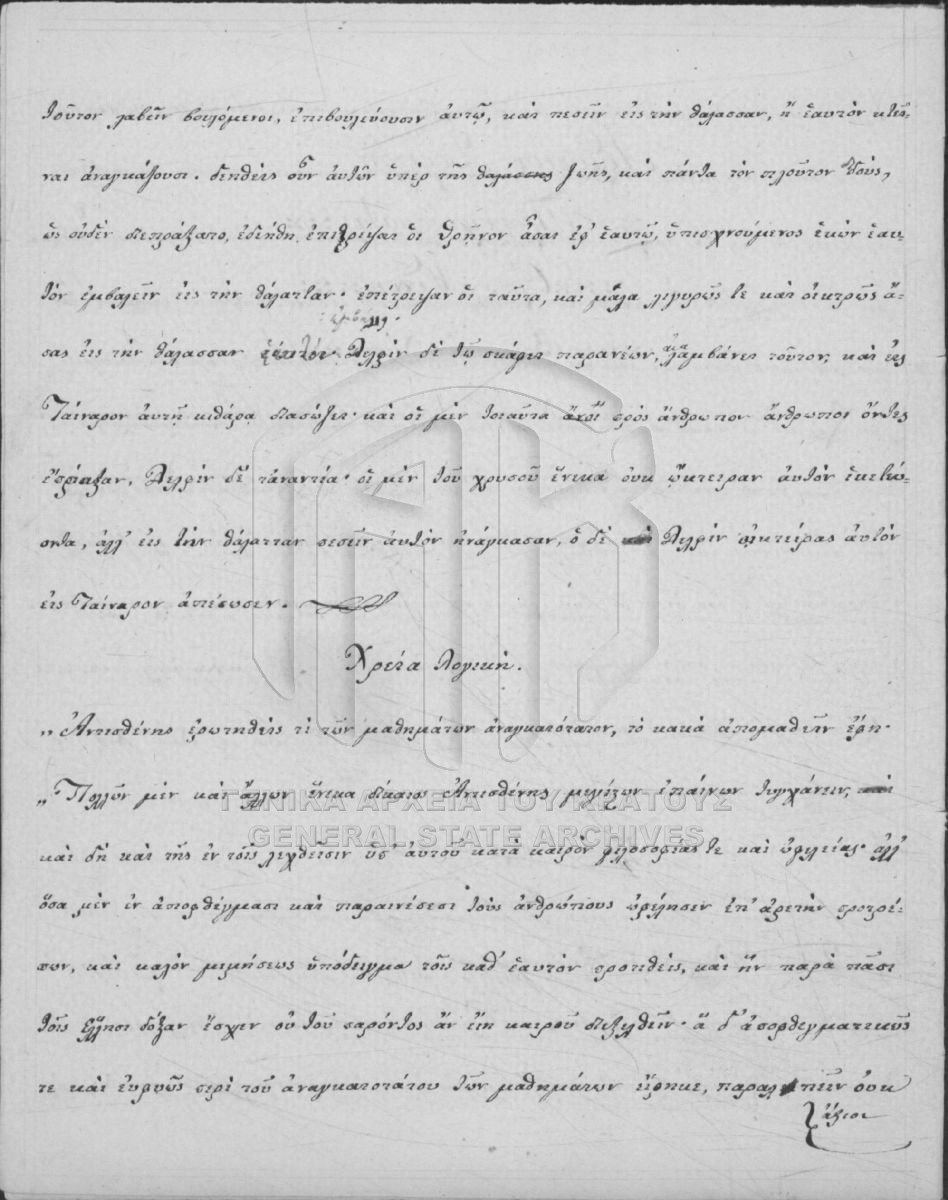 τοῦτον λαβεῖν βουλόμενοι, ἐπιβουλεύουσιν αὐτῷ, καὶ πεσεῖν εἰς τὴν θάλασσαν, ἢ ἑαυτὸν κτεῖ-
ναι ἀναγκάζουσι. δεηθεὶς οὖν αὐτῶν ὑπὲρ τῆς θαλάσσης ζωῆς, καὶ πάντα τὸν πλοῦτον δούς,
ὡς οὐδὲν διεπράξατο, ἐδεήθη ἐπιτρέψαι οἱ θρῆνον ᾆσαι ἐφ' ἑαυτῷ, ὑπισχνούμενος ἑκὼν ἑαυ-
τὸν ἐμβαλεῖν εἰς τὴν θάλατταν· ἐπέτρεψαν οἱ ταῦτα, καὶ μάλα λιγυρῶς τε καὶ οἰκτρῶς ᾄ-
σας εἰς τὴν θάλασσαν Δελφὶν δὲ τῷ σκάφει παρανέων, ἀναλαμβάνει τοῦτον, καὶ εἰς
Ταίναρον αὐτῇ κιθάρᾳ διασώζει· καὶ οἱ μὲν τοιαῦτα πρὸς ἄνθρωπον ἄνθρωποι ὄντες
ἔπραξαν, Δελφὶν δὲ τἀναντία· οἱ μὲν τοῦ χρυσοῦ ἕνεκα οὐκ ᾤκτειραν αὐτὸν ἱκετεύ-
οντα, ἀλλ' εἰς τὴν θάλατταν πεσεῖν αὐτὸν ἠνάγκασαν, ὁ δὲ Δελφὶν οἰκτείρας αὐτὸν
εἰς Ταίναρον ἀπέσωσεν.
Χρεία Λογική.
„Ἀντισθένης ἐρωτηθεὶς τί τῶν μαθημάτων ἀναγκαιότατον, τὸ κακὰ ἀπομαθεῖν ἔφη·
„Πολλῶν μὲν καὶ ἄλλων ἕνεκα δίκαιος Ἀντισθένης μεγίστων ἐπαίνων τυγχάνειν,
καὶ δὴ καὶ τῆς ἐν τοῖς λεχθεῖσιν ὑπ' αὐτοῦ κατὰ καιρὸν φιλοσοφίας τε καὶ ὠφελείας· ἀλλ'
ὅσα μὲν ἐν ἀποφθέγμασι καὶ παραινέσεσι τοὺς ἀνθρώπους ὠφέλησεν ἐπ' ἀρετὴν προτρέ-
πων, καὶ καλὸν μιμήσεως ὑπόδειγμα τοῖς καθ' ἑαυτὸν προτεθεὶς, καὶ ἣν παρὰ πᾶσι
τοῖς Ἕλλησι δόξαν ἔσχεν οὐ τοῦ παρόντος ἂν εἴη καιροῦ διεξελθεῖν· ἃ δ' ἀποφθεγματικῶς
τε καὶ εὐφυῶς περὶ τοῦ ἀναγκαιοτάτου τῶν μαθημάτων εἴρηκε, παραλιπεῖν οὐκ
ἄξιον
ΓΕΝΙΚΑ ΑΡΧΕΙΑ ΤΟΥ ΚΡΑΤΟΥΣ
GENERAL STATE ARCHIVES